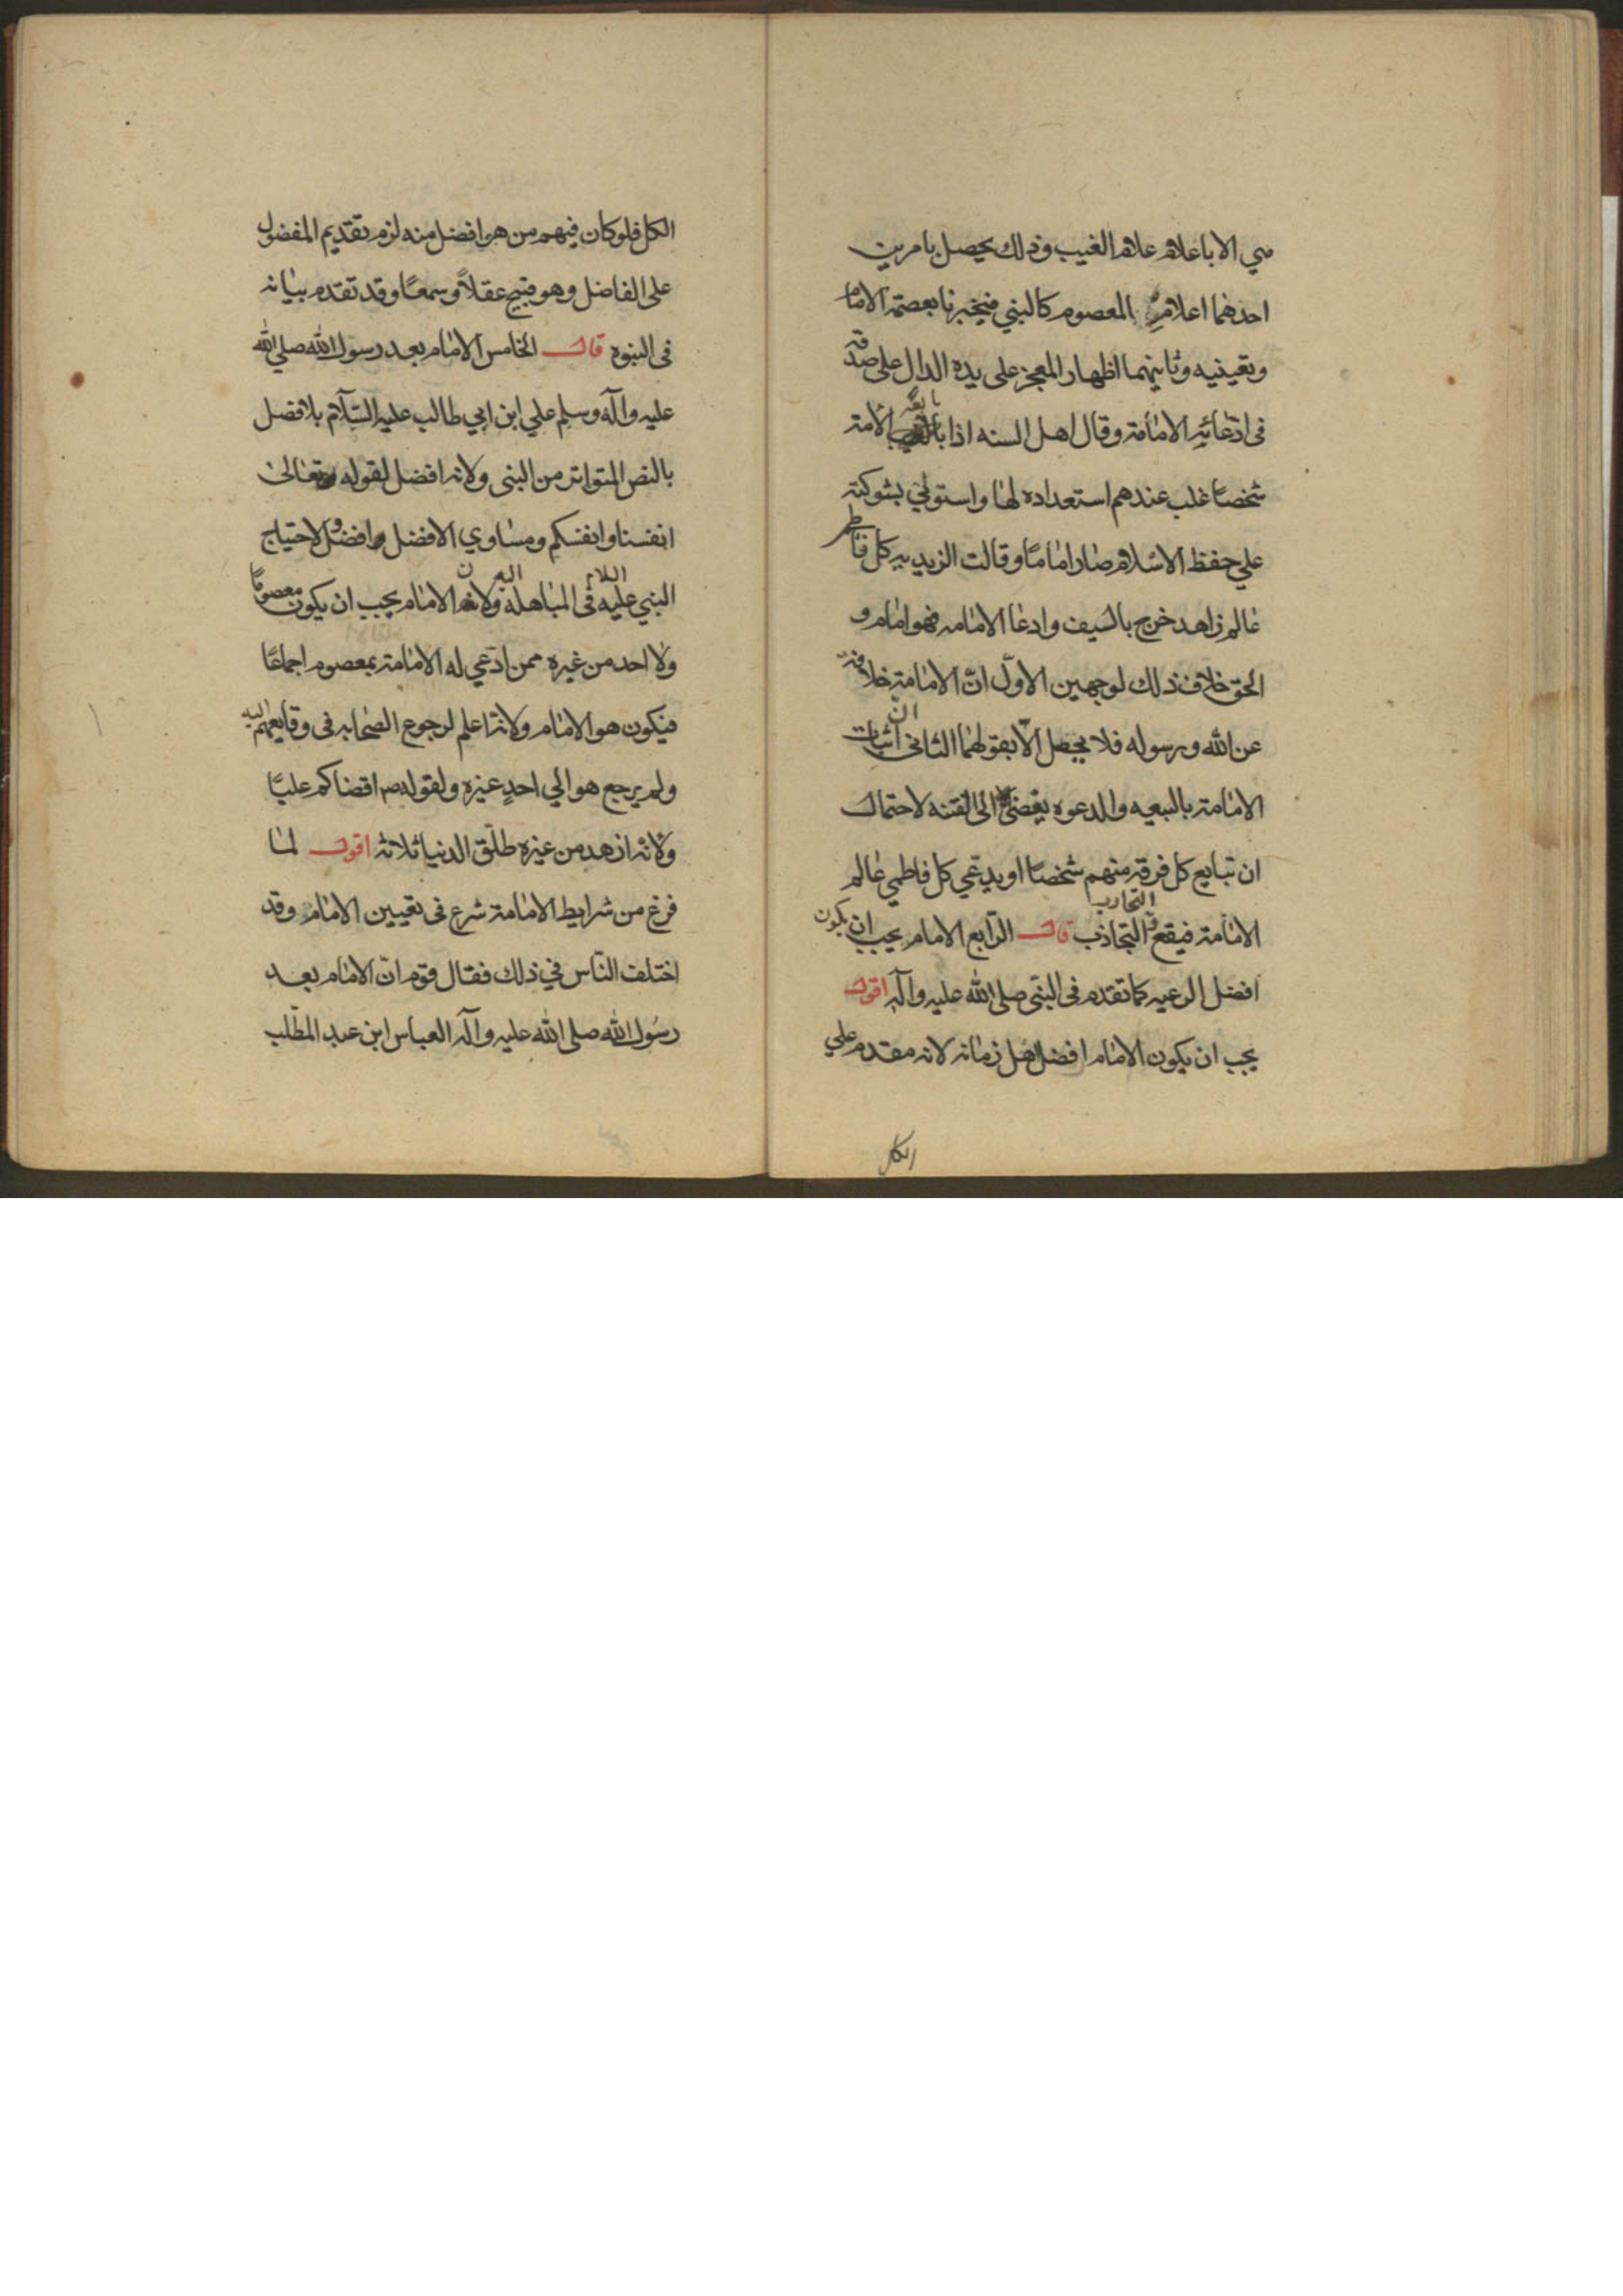 مي الا باعلام علام الغيب وذلك يحصل بامرين
احدهما اعلامه المعصوم كالنبي فيخبرنا بعصمة الامام
وتعينيه وثانيهما اظهار المعجز على يده الدال على صدقه
فى ادّعائه الامامة وقال اهل السنه اذا بايعت الامة
شخصًا غلب عندهم استعداده لها واستولى بشوكته
علي حفظ الاسلام صار امامًا وقالت الزيديه كل فاطمي
عالم زاهد خرج بالسيف وادعا الامامه فهو امام و
الحق خلاف ذلك لوجهين الاوّل انّ الامامة خلافة
عن الله ورسوله فلا يحصل الّا بقولهما الثانى ان اثبات
الامامة بالبيعه والدعوه يفضى الى الفتنه لاحتمال
ان تبايع كل فرقة منهم شخصًا او يدعي كل فاطمي عالم
الامامة فيقع التحارب و التجاذب قال الرّابع الامام يجب ان يكون
افضل الرعيه كما تقدم فى النبّى صلى الله عليه وآله اقول
يجب ان يكون الامام افضل اهل زمانه لانه مقدم علي
الكل
الكل فلو كان فيهم من هو افضل منه لزم تقديم المفضول
على الفاضل وهو قبيح عقلاً وسمعًا وقد تقدم بيانه
فى النبوه قال الخامس الامام بعد رسول الله صلى الله
عليه وآله وسلم علي ابن ابي طالب عليه السّلام بلا فصل
بالنص المتواتر من النبى ولانه افضل لقوله تعالى
انفسنا وانفسكم ومساوي الافضل افضل ولاحتياج
النبي عليه السلام اليه فى المباهله ولان الامام يجب ان يكون معصومًا
ولا احد من غيره ممن ادّعي له الامامة بمعصوم اجماعًا
فيكون هو الامام ولانه اعلم لرجوع الصحابه فى وقايعهم اليه
ولم يرجع هو الي احدٍ غيره ولقوله ص اقضاكم عليًا
ولانه ازهد من غيره طلّق الدنيا ثلاثه اقول لما
فرغ من شرايط الامامة شرع فى تعيين الامام وقد
اختلف النّاس في ذلك فقال قوم انّ الامام بعد
رسُول الله صلى الله عليه وآله العباس ابن عبد المطّلب